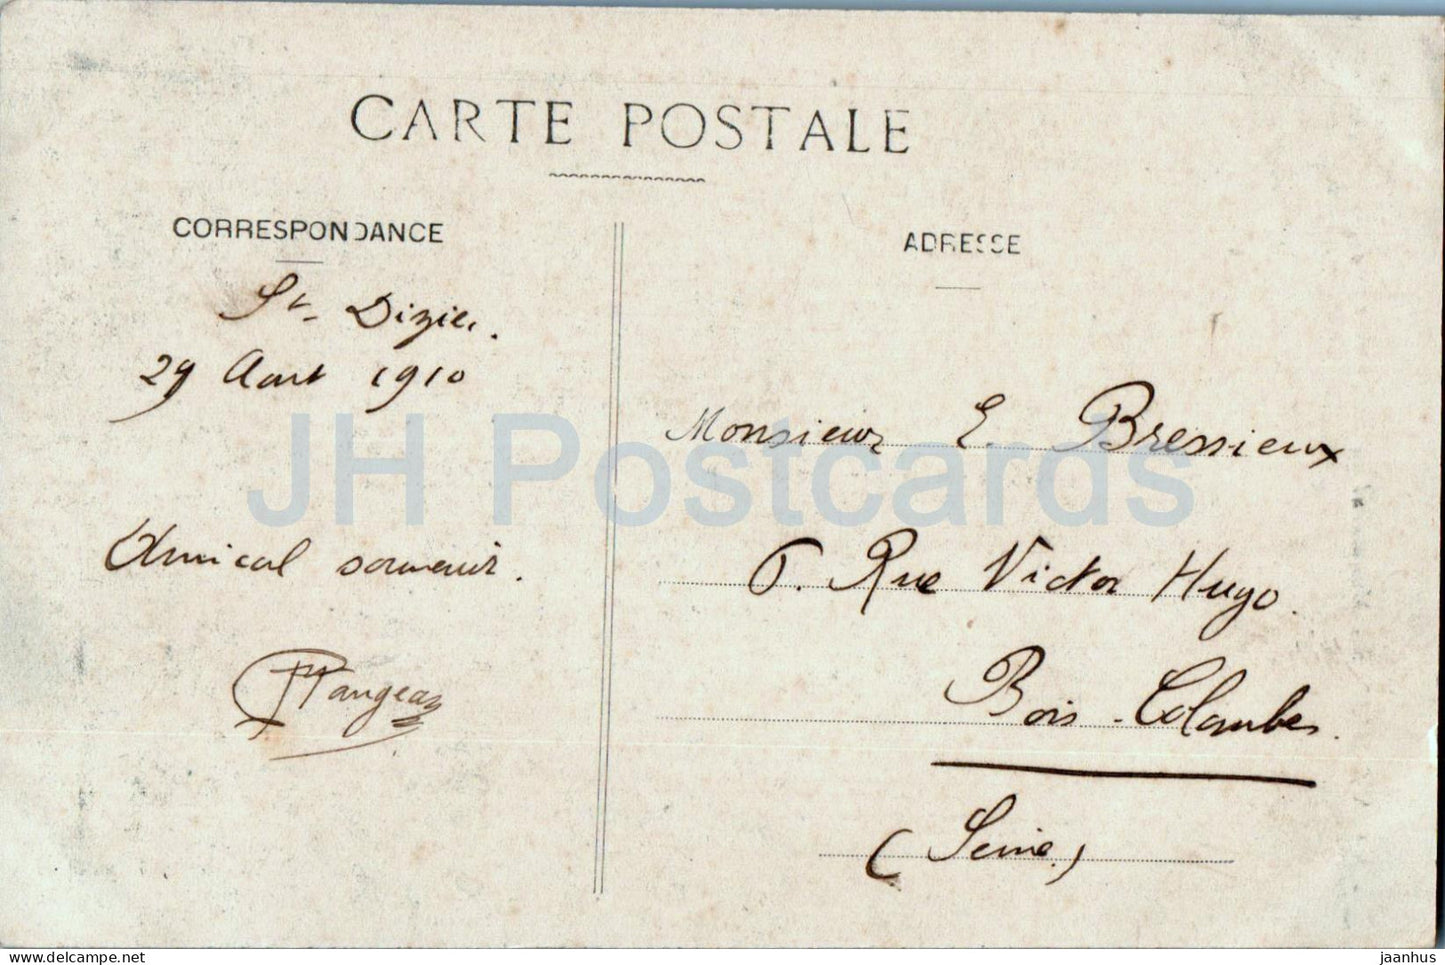 CARTE POSTALE
CORRESPONDANCE
St. Dizier.
29 Aout 1910
Amical souvenir.
ADRESSE
Monsieur E. Bressieux
6. Rue Victor Hugo.
Bois-Colombes.
(Seine)
JH Postcards
delcampe.net
jaanhus